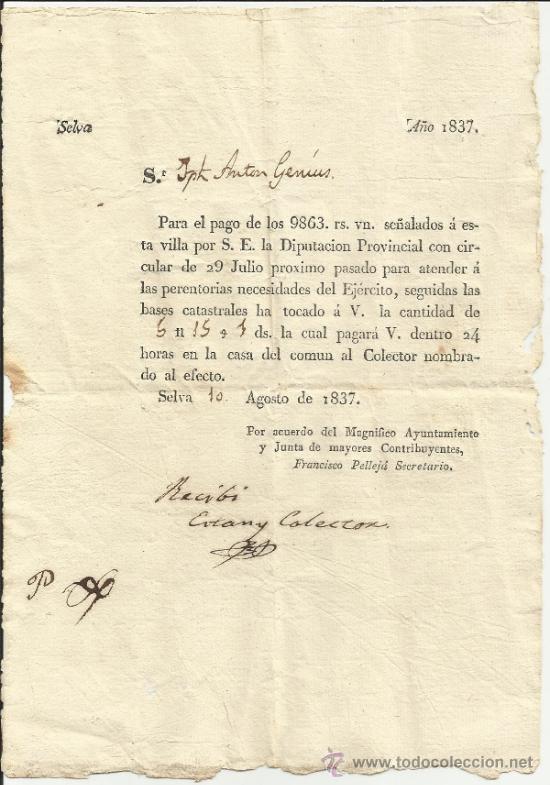 Selva Año 1837.
S.r Jph Anton Genius.
Para el pago de los 9863. rs. vn. señalados á es-
ta villa por S. E. la Diputacion Provincial con cir-
cular de 29 Julio proximo pasado para atender á
las perentorias necesidades del Ejército, seguidas las
bases catastrales ha tocado á V. la cantidad de
5 ll 15 s ds. la cual pagará V. dentro 24
horas en la casa del comun al Colector nombra-
do al efecto.
Selva 10. Agosto de 1837.
Por acuerdo del Magnifico Ayuntamiento
y Junta de mayores Contribuyentes,
Francisco Pellejá Secretario.
Recibi
Colector.
P
www.todocoleccion.net